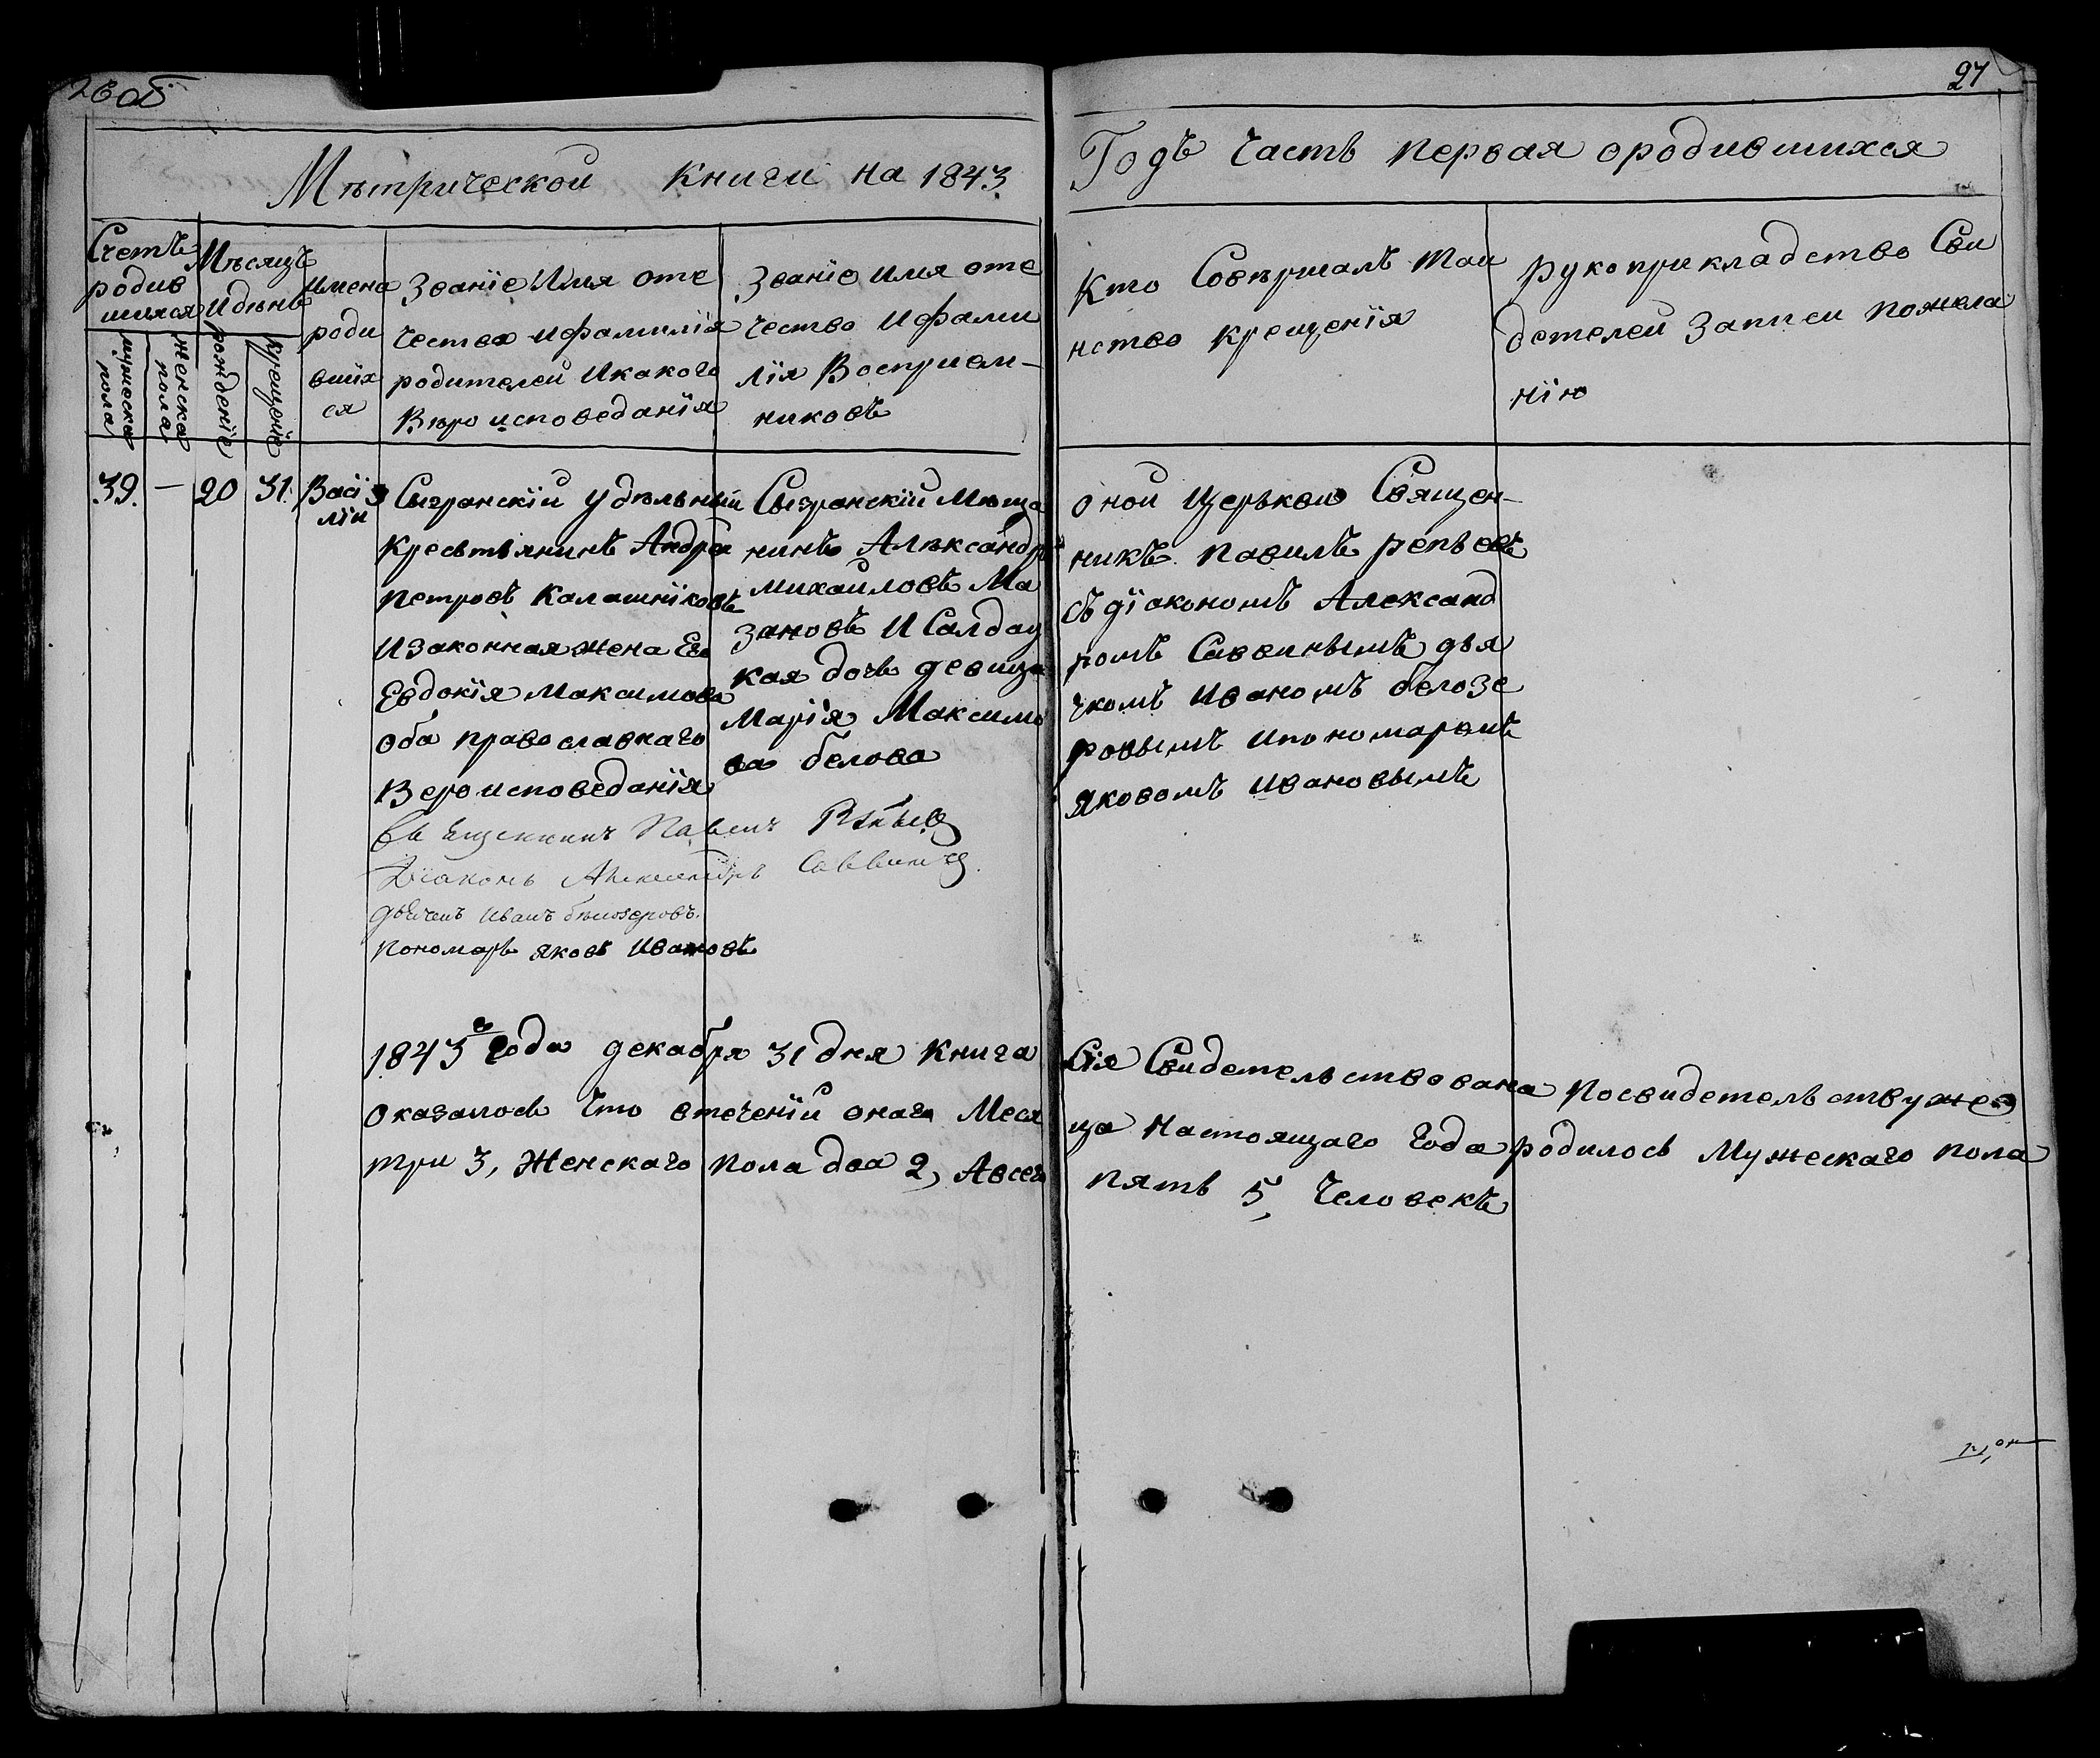 26 об
27
Мѣтрической книги на 1843 Годъ часть первая ородившихся
Счетъ
родив
шихся
мужеска
пола
женска
пола
Мѣсяцъ
идѣнь
рожденїе
крещенїе
имена
роди
вших
ся
Званїе Имя оте
чества ифамилїя
родителей Икакого
Вѣро исповеданїя
Званїе имя оте
чество Ифами
лїя Восприем-
никовъ
Кто Совѣршалъ таи
нство крещенїя
рукоприкладство Сви
детелей записи пожела
нїю
39. — 20 31. Васї
лїи
Сызранскїй удѣльный
кресьтьянинъ Андреи
петровъ Калашнїковъ
Изаконная жена Его
Евдокїя Максимова
оба православнаго
Вероисповеданїя
Сызранскїй Мѣща
нинъ Алѣксандръ
михаиловъ Ма
зановъ И Салдац
кая дочь девица
Марїя Максимо
ва белова
оной Церьквы Священ-
никъ павилъ репьевъ
съ дїакономъ Александ
ромъ Саввинымъ дья
чкомъ Иваномъ белозе
ровымъ ипономаремъ
яковомъ Ивановымъ
Священникъ Павелъ Репьевъ
Дїаконъ Александръ Саввинъ
дьячекъ иванъ бѣлозеровъ.
пономарь яковъ Ивановъ
1843 года декабря 31 дня книга Сїя Свидетельствована посвидетельству жео
оказалось что втеченїи онаго Меся ца Настоящаго года родилось Мужескаго пола
три 3, Женскаго пола два 2, Авсего пять 5, человекъ